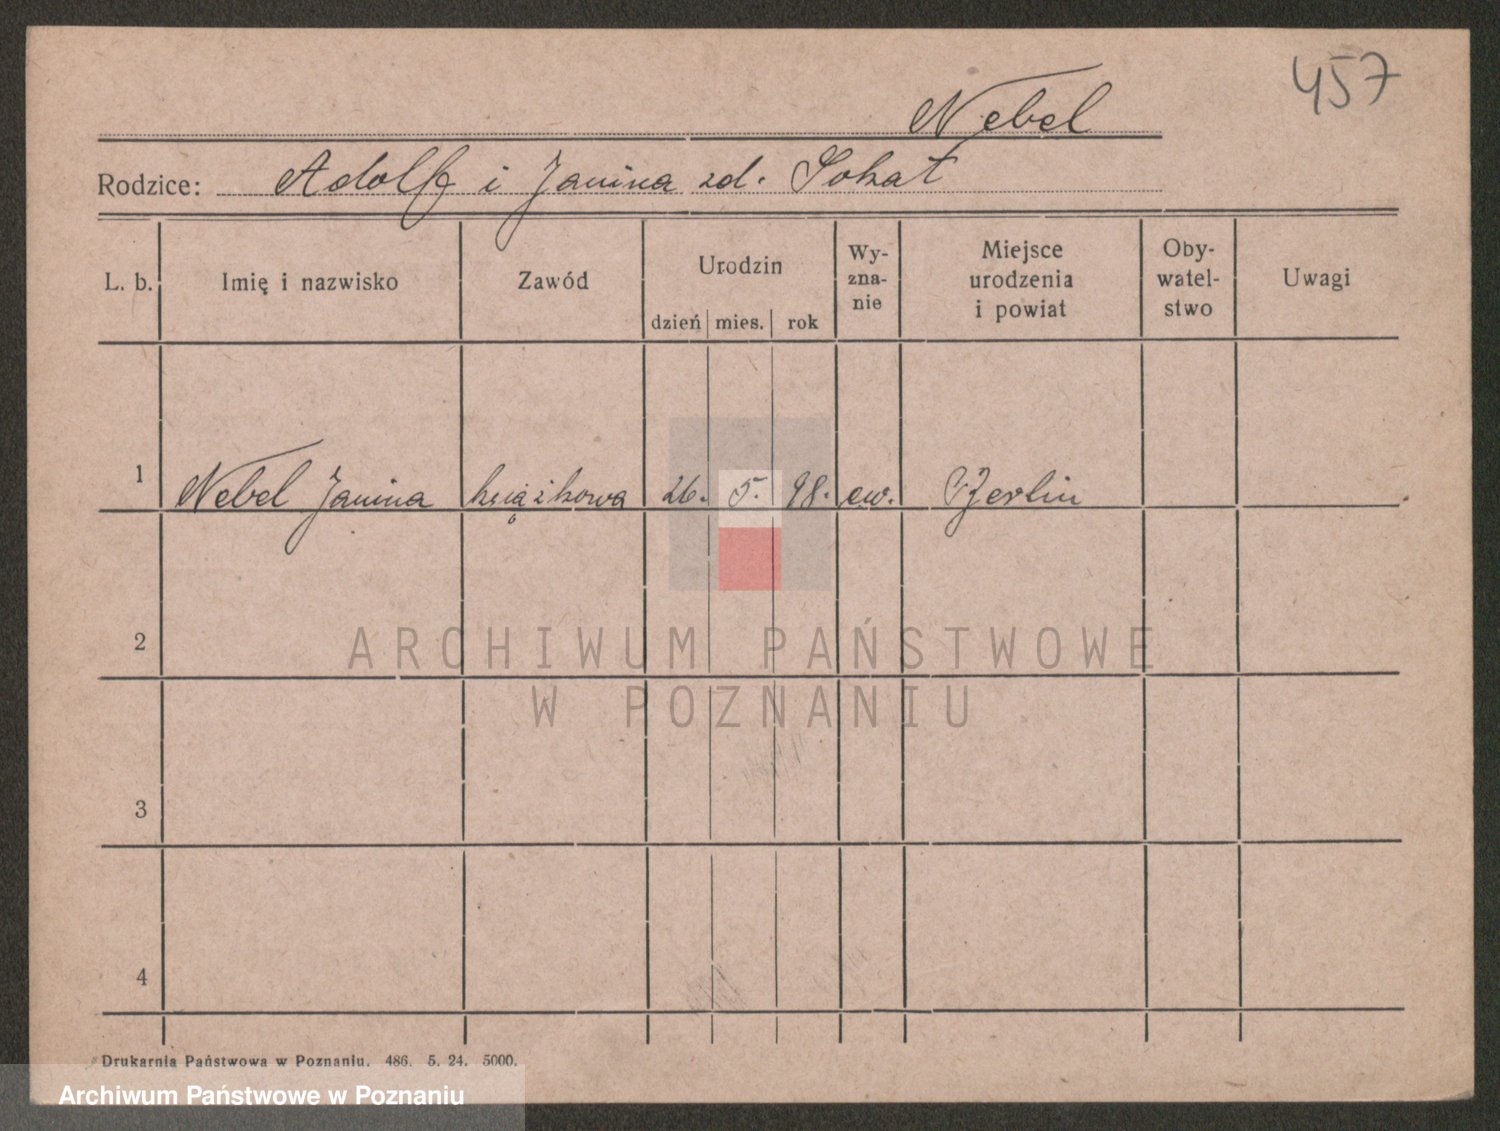 457
Nebel
Rodzice: Adolf i Janina zd. Sokat
L. b. Imię i nazwisko Zawód Urodzin dzień mies. rok Wy-zna-nie Miejsce urodzenia i powiat Oby-watel-stwo Uwagi
1 Nebel Janina książkowa 26. 5. 98. ew. Berlin
2
ARCHIWUM PAŃSTWOWE
W POZNANIU
3
4
Drukarnia Państwowa w Poznaniu. 486. 5. 24. 5000.
Archiwum Państwowe w Poznaniu